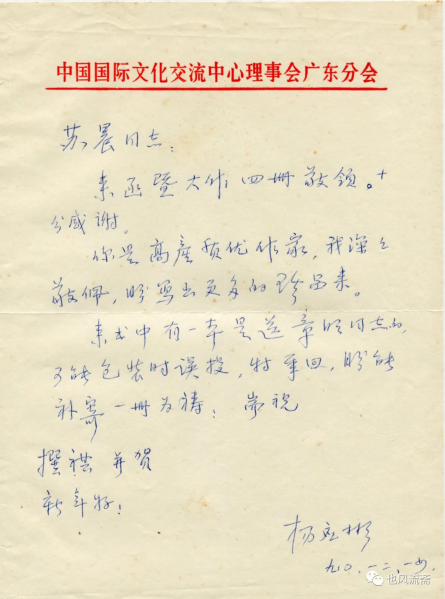 中国国际文化交流中心理事会广东分会
苏晨同志：
来函暨大作四册敬领。十
分感谢。
你是高产质优作家，我深之
敬佩，盼写出更多的珍品来。
来书中有一本是送章明同志的，
可能包装时误投，特奉回，盼能
补寄一册为祷；耑祝
撰祺 并贺
新年好！
杨应彬
九〇.一二.一四.
也风流斋